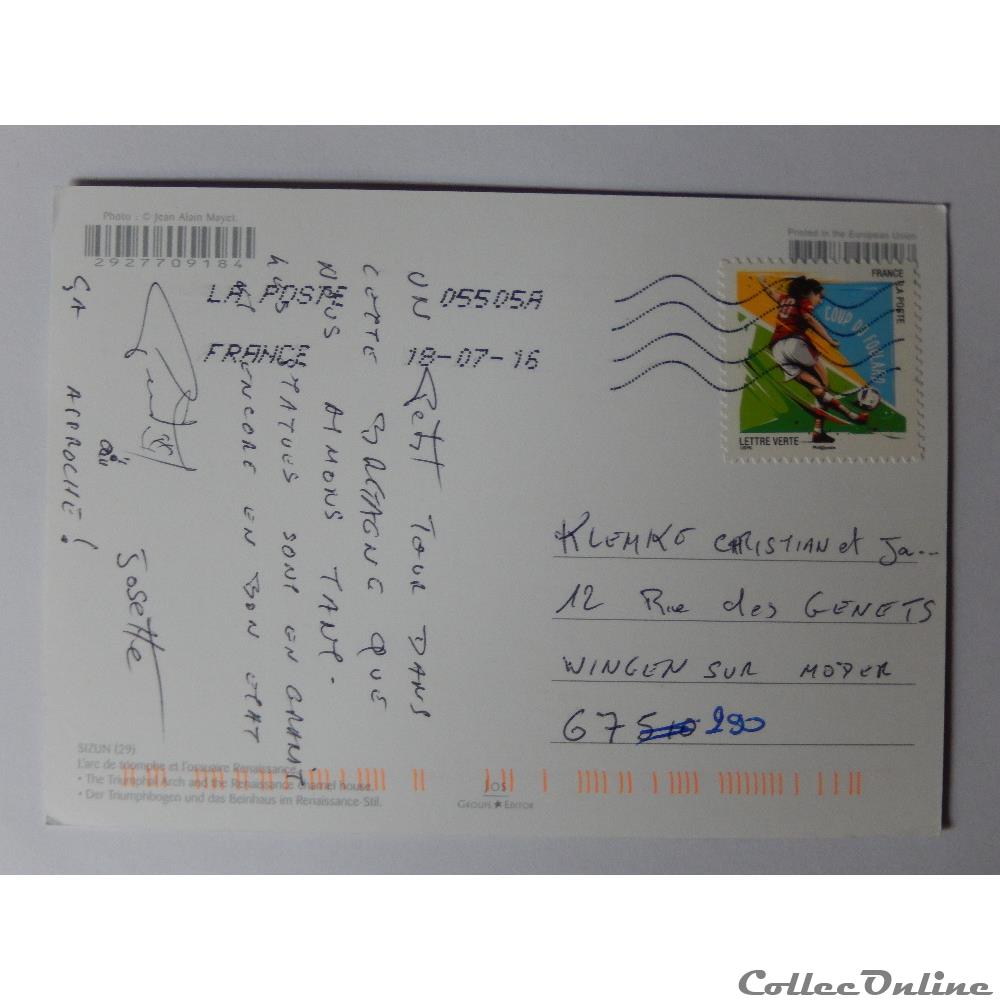 Photo : © Jean Alain Mayet.
2927709184
Printed in the European Union
FRANCE
LA POSTE
COUP DU FOULARD
LETTRE VERTE
LA POSTE 05505A
FRANCE 18-07-16
UN PETIT TOUR DANS
CETTE BRETAGNE QUE
NOUS AIMONS TANT.
LES STATUES SONT EN GRANIT
ET ENCORE EN BON ETAT
ÇA APPROCHE !
Josette
KLEMKE CHRISTIAN et Ja...
12 Rue des GENETS
WINGEN SUR MODER
67 290
SIZUN (29)
L'arc de triomphe et l'ossuaire Renaissance.
• The Triumphal Arch and the Renaissance charnel house.
• Der Triumphbogen und das Beinhaus im Renaissance-Stil.
JOS
GROUPE EDITOR
CollecOnline